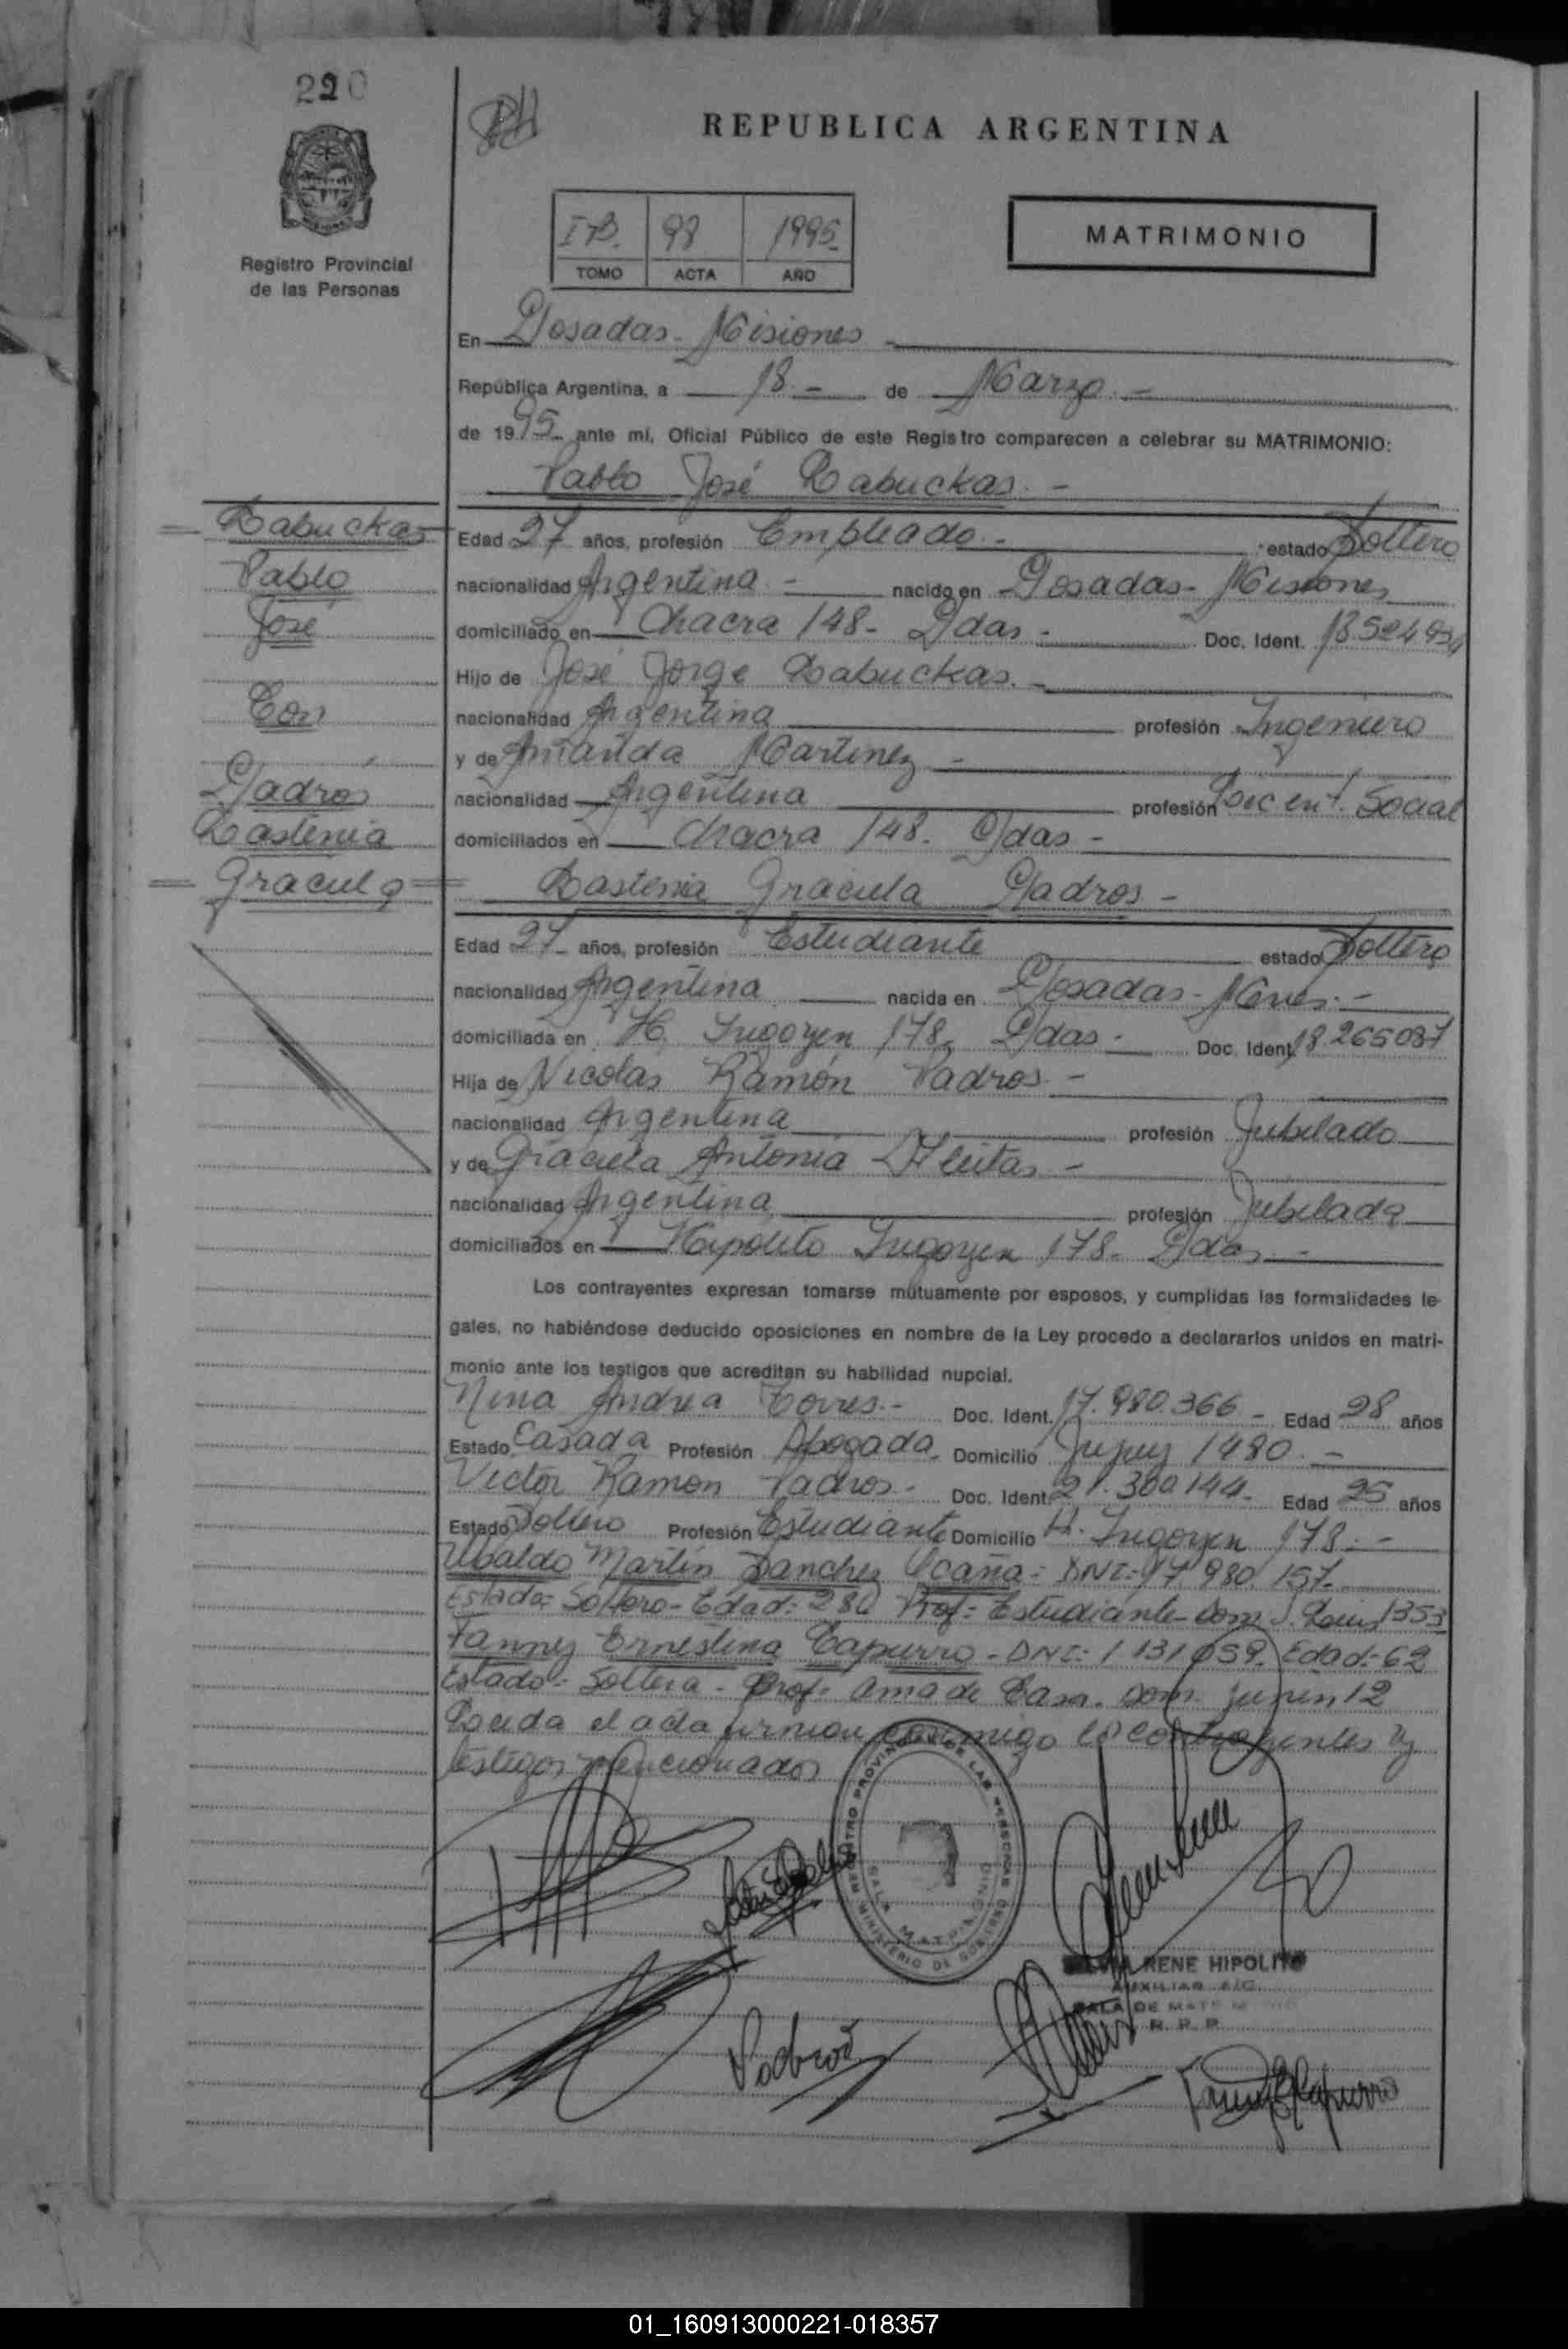 220
REPUBLICA ARGENTINA
Registro Provincial
de las Personas
IB. 98 1995
TOMO ACTA AÑO
MATRIMONIO
En Posadas - Misiones -
República Argentina, a 18.- de Marzo.-
de 1995 ante mí, Oficial Público de este Registro comparecen a celebrar su MATRIMONIO:
Pablo José Labuckas.-
Labuckas
Pablo
José
Con
Padrós
Lastenia
Graciela
Edad 27 años, profesión Empleado.- estado Soltero
nacionalidad Argentina.- nacido en Posadas - Misiones
domiciliado en Chacra 148- Pdas- Doc. Ident. 18.524.934
Hijo de José Jorge Labuckas.-
nacionalidad Argentina profesión Ingeniero
y de Amanda Martinez -
nacionalidad Argentina profesión Social
domiciliados en Chacra 148. Pdas-
Lastenia Graciela Padros-
Edad 27 años, profesión Estudiante estado Soltera
nacionalidad Argentina nacida en Posadas - Mnes.-
domiciliada en H. Irigoyen 178. Pdas- Doc. Ident. 18.265.087
Hija de Nicolas Ramón Padros.-
nacionalidad Argentina profesión Jubilado
y de Graciela Antonia Fleitas-
nacionalidad Argentina profesión Jubilada
domiciliados en Hipólito Irigoyen 178- Pdas-
Los contrayentes expresan tomarse mutuamente por esposos, y cumplidas las formalidades le-
gales, no habiéndose deducido oposiciones en nombre de la Ley procedo a declararlos unidos en matri-
monio ante los testigos que acreditan su habilidad nupcial.
Nina Andrea Torres.- Doc. Ident. 17.980.366- Edad 28 años
Estado Casada Profesión Abogada. Domicilio Jujuy 1480.-
Victor Ramon Padros.- Doc. Ident. 21.300.144- Edad 25 años
Estado Soltero Profesión Estudiante Domicilio H. Irigoyen 178.-
Ubaldo Martín Sanchez Ocaña- DNI: 17.980.157-
Estado: Soltero- Edad: 28 Prof: Estudiante- Dom. S. Luis 1353
Fanny Ernestina Capurro- DNI: 1.131.059. Edad: 62
Estado: Soltera- Prof: ama de Casa. Dom. Junin 12
Leida el acta firman conmigo los contrayentes y
testigos mencionados
REGISTRO PROVINCIAL DE LAS PERSONAS
MINISTERIO DE GOBIERNO
SALA MATRIMONIO
RENE HIPOLITO
AUXILIAR A/C
SALA DE MATRIMONIO
R. P. P.
Padros
Fanny E Capurro
01_160913000221-018357